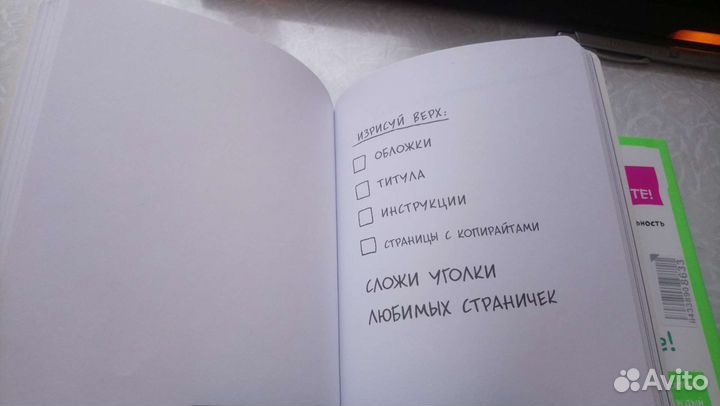 ИЗРИСУЙ ВЕРХ:
ОБЛОЖКИ
ТИТУЛА
ИНСТРУКЦИИ
СТРАНИЦЫ С КОПИРАЙТАМИ
СЛОЖИ УГОЛКИ
ЛЮБИМЫХ СТРАНИЧЕК
ТЕ!
ЬНОСТЬ
Й!
Avito